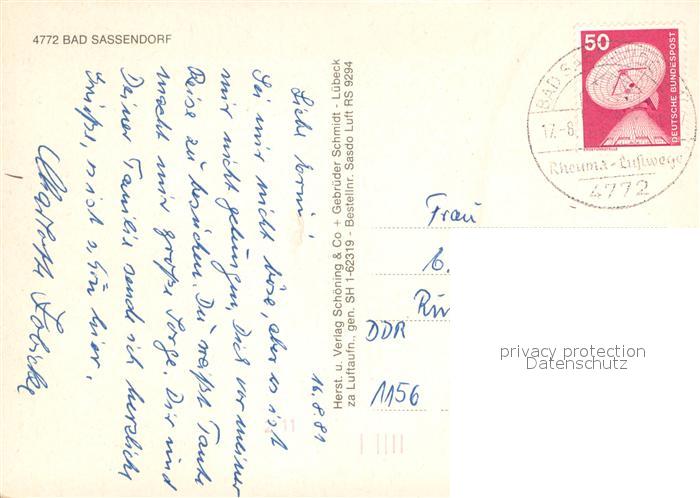 4772 BAD SASSENDORF
16.8.81
Liebe
Sei mir nicht böse, aber es ist
mir nicht gelungen, Dich vor meiner
Reise zu besuchen. Du weißt Tante
macht mir große Sorge. Dir und
Deiner Familie sende ich herzliche
Grüße, es ist schön hier.
Herst. u. Verlag Schöning & Co + Gebrüder Schmidt - Lübeck
za Luftaufn., gen. SH 1-62319 - Bestellnr. Sasdo Luft RS 9294
50
DEUTSCHE BUNDESPOST
BAD SA
17.-8.
Rheuma-Luftwege
4772
Frau
DDR
1156
11
privacy protection
Datenschutz